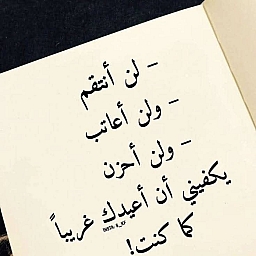 - لن أنتقم
- ولن أعاتب
- ولن أحزن
يكفيني أن أعيدك غريباً
كما كنت!